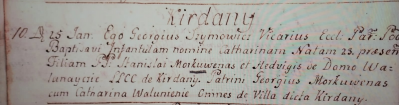 Kirdany
10. D 25 Jan. Ego Georgius Szymowicz Vicarius Eccl: Par:
Baptisavi Infantulam nomine Catharinam Natam 23 præsen
Filiam Stanislai Morkuwenas et Hedvigis de Domo Wa-
lanaycie LLCC de Kirdany. Patrini Georgius Morkuwenas
cum Catharina Walunienie Omnes de Villa dicta Kirdany.